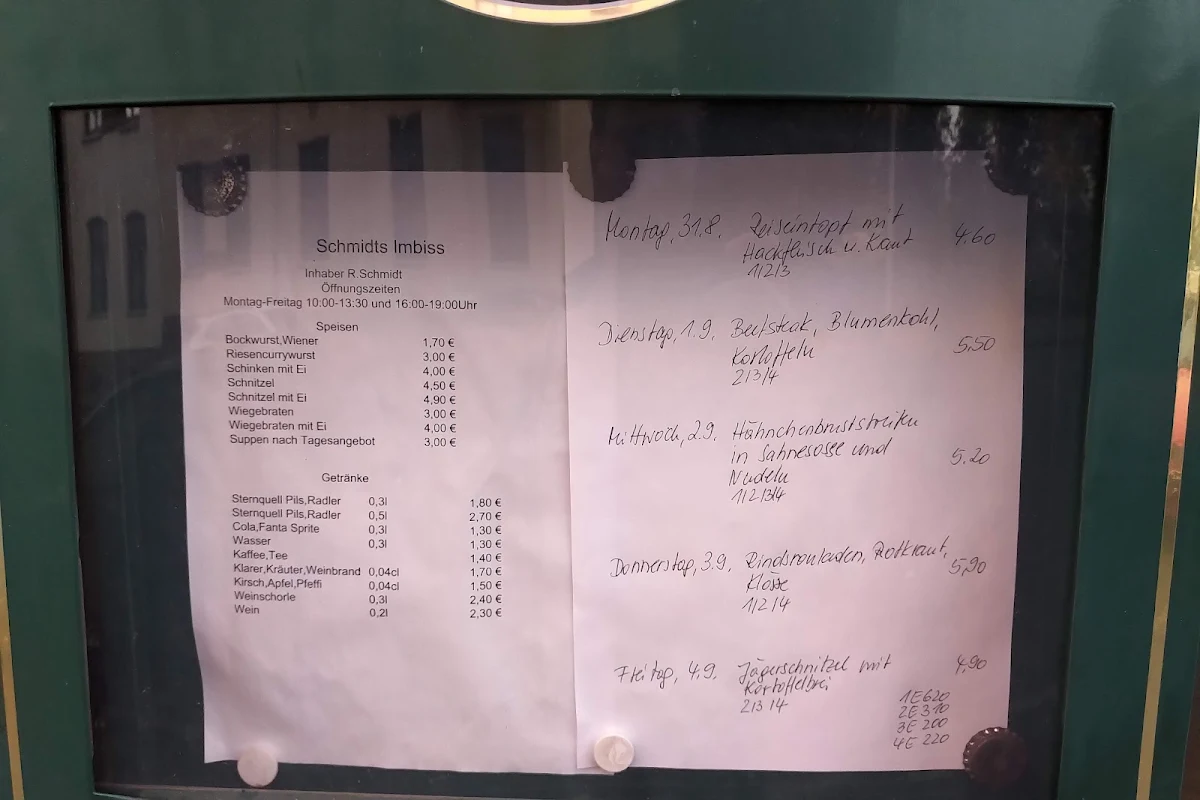 Schmidts Imbiss
Inhaber R.Schmidt
Öffnungszeiten
Montag-Freitag 10:00-13:30 und 16:00-19:00Uhr
Speisen
Bockwurst,Wiener 1,70 €
Riesencurrywurst 3,00 €
Schinken mit Ei 4,00 €
Schnitzel 4,50 €
Schnitzel mit Ei 4,90 €
Wiegebraten 3,00 €
Wiegebraten mit Ei 4,00 €
Suppen nach Tagesangebot 3,00 €
Getränke
Sternquell Pils,Radler 0,3l 1,80 €
Sternquell Pils,Radler 0,5l 2,70 €
Cola,Fanta Sprite 0,3l 1,30 €
Wasser 0,3l 1,30 €
Kaffee,Tee 1,40 €
Klarer,Kräuter,Weinbrand 0,04cl 1,70 €
Kirsch,Apfel,Pfeffi 0,04cl 1,50 €
Weinschorle 0,3l 2,40 €
Wein 0,2l 2,30 €
Montag, 31.8. Reiseintopf mit 4.60
Hackfleisch u. Kraut
1/2/3
Dienstag, 1.9. Beefsteak, Blumenkohl, 5,50
Kartoffeln
2/3/4
Mittwoch, 2.9. Hähnchenbruststreifen
in Sahnesosse und 5.20
Nudeln
1/2/3/4
Donnerstag, 3.9. Rindsrouladen, Rotkraut, 5,90
Klösse
1/2/4
Freitag, 4.9. Jägerschnitzel mit 4.90
Kartoffelbrei
2/3/4
1E620
2E310
3E200
4E220